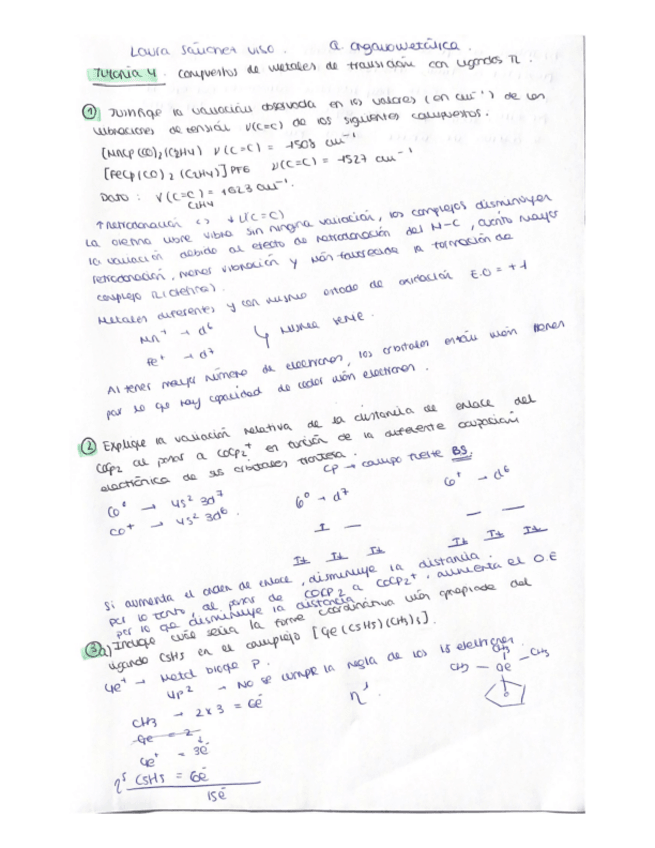 Laura Sánchez Viso. Q. Organometálica.
Tutoría 4. Compuestos de metales de transición con ligandos π.
① Justifique la variación observada en los valores (en cm⁻¹) de las
vibraciones de tensión ν(C=C) de los siguientes compuestos.
[MnCp(CO)₂(C₂H₄)] ν(C=C) = 1508 cm⁻¹
[FeCp(CO)₂(C₂H₄)]PF6 ν(C=C) = 1527 cm⁻¹
Dato: ν(C=C) = 1623 cm⁻¹.
C₂H₄
↑ Retrodonación ↓ ν(C=C)
La olefina libre vibra sin ninguna variación, los complejos disminuyen
la variación debido al efecto de retrodonación del M-C, cuanto mayor
retrodonación, menor vibración y más favorecida la formación de
complejo π (olefina).
Metales diferentes y con mismo estado de oxidación E.O = +1
Mn⁺ → d⁶
misma serie.
Fe⁺ → d⁷
Al tener mayor número de electrones, los orbitales están más llenos
por lo que hay capacidad de ceder más electrones.
② Explique la variación relativa de la distancia de enlace del
CoCp₂ al pasar a CoCp₂⁺ en función de la diferente ocupación
electrónica de sus orbitales frontera.
Cp → campo fuerte BS.
Co⁰ → 4s² 3d⁷
Co⁺ → 4s² 3d⁶.
Co⁰ → d⁷
Co⁺ → d⁶
Si aumenta el orden de enlace, disminuye la distancia.
por lo tanto, al pasar de COCP2 a CoCp₂⁺, aumenta el O.E
por lo que disminuye la distancia
③a) Indique cuál sería la forma coordinativa más apropiada del
ligando C5H5 en el complejo [Ge(C5H5)(CH3)3].
Ge⁺ → Metal bloque P.
4p² → No se cumple la regla de los 18 electrones.
CH3 → 2x3 = 6ē
Ge = 2
Ge⁺ = 3ē
η⁵ C5H5 = 6ē
15ē
η¹
CH3
CH3 — Ge — CH3